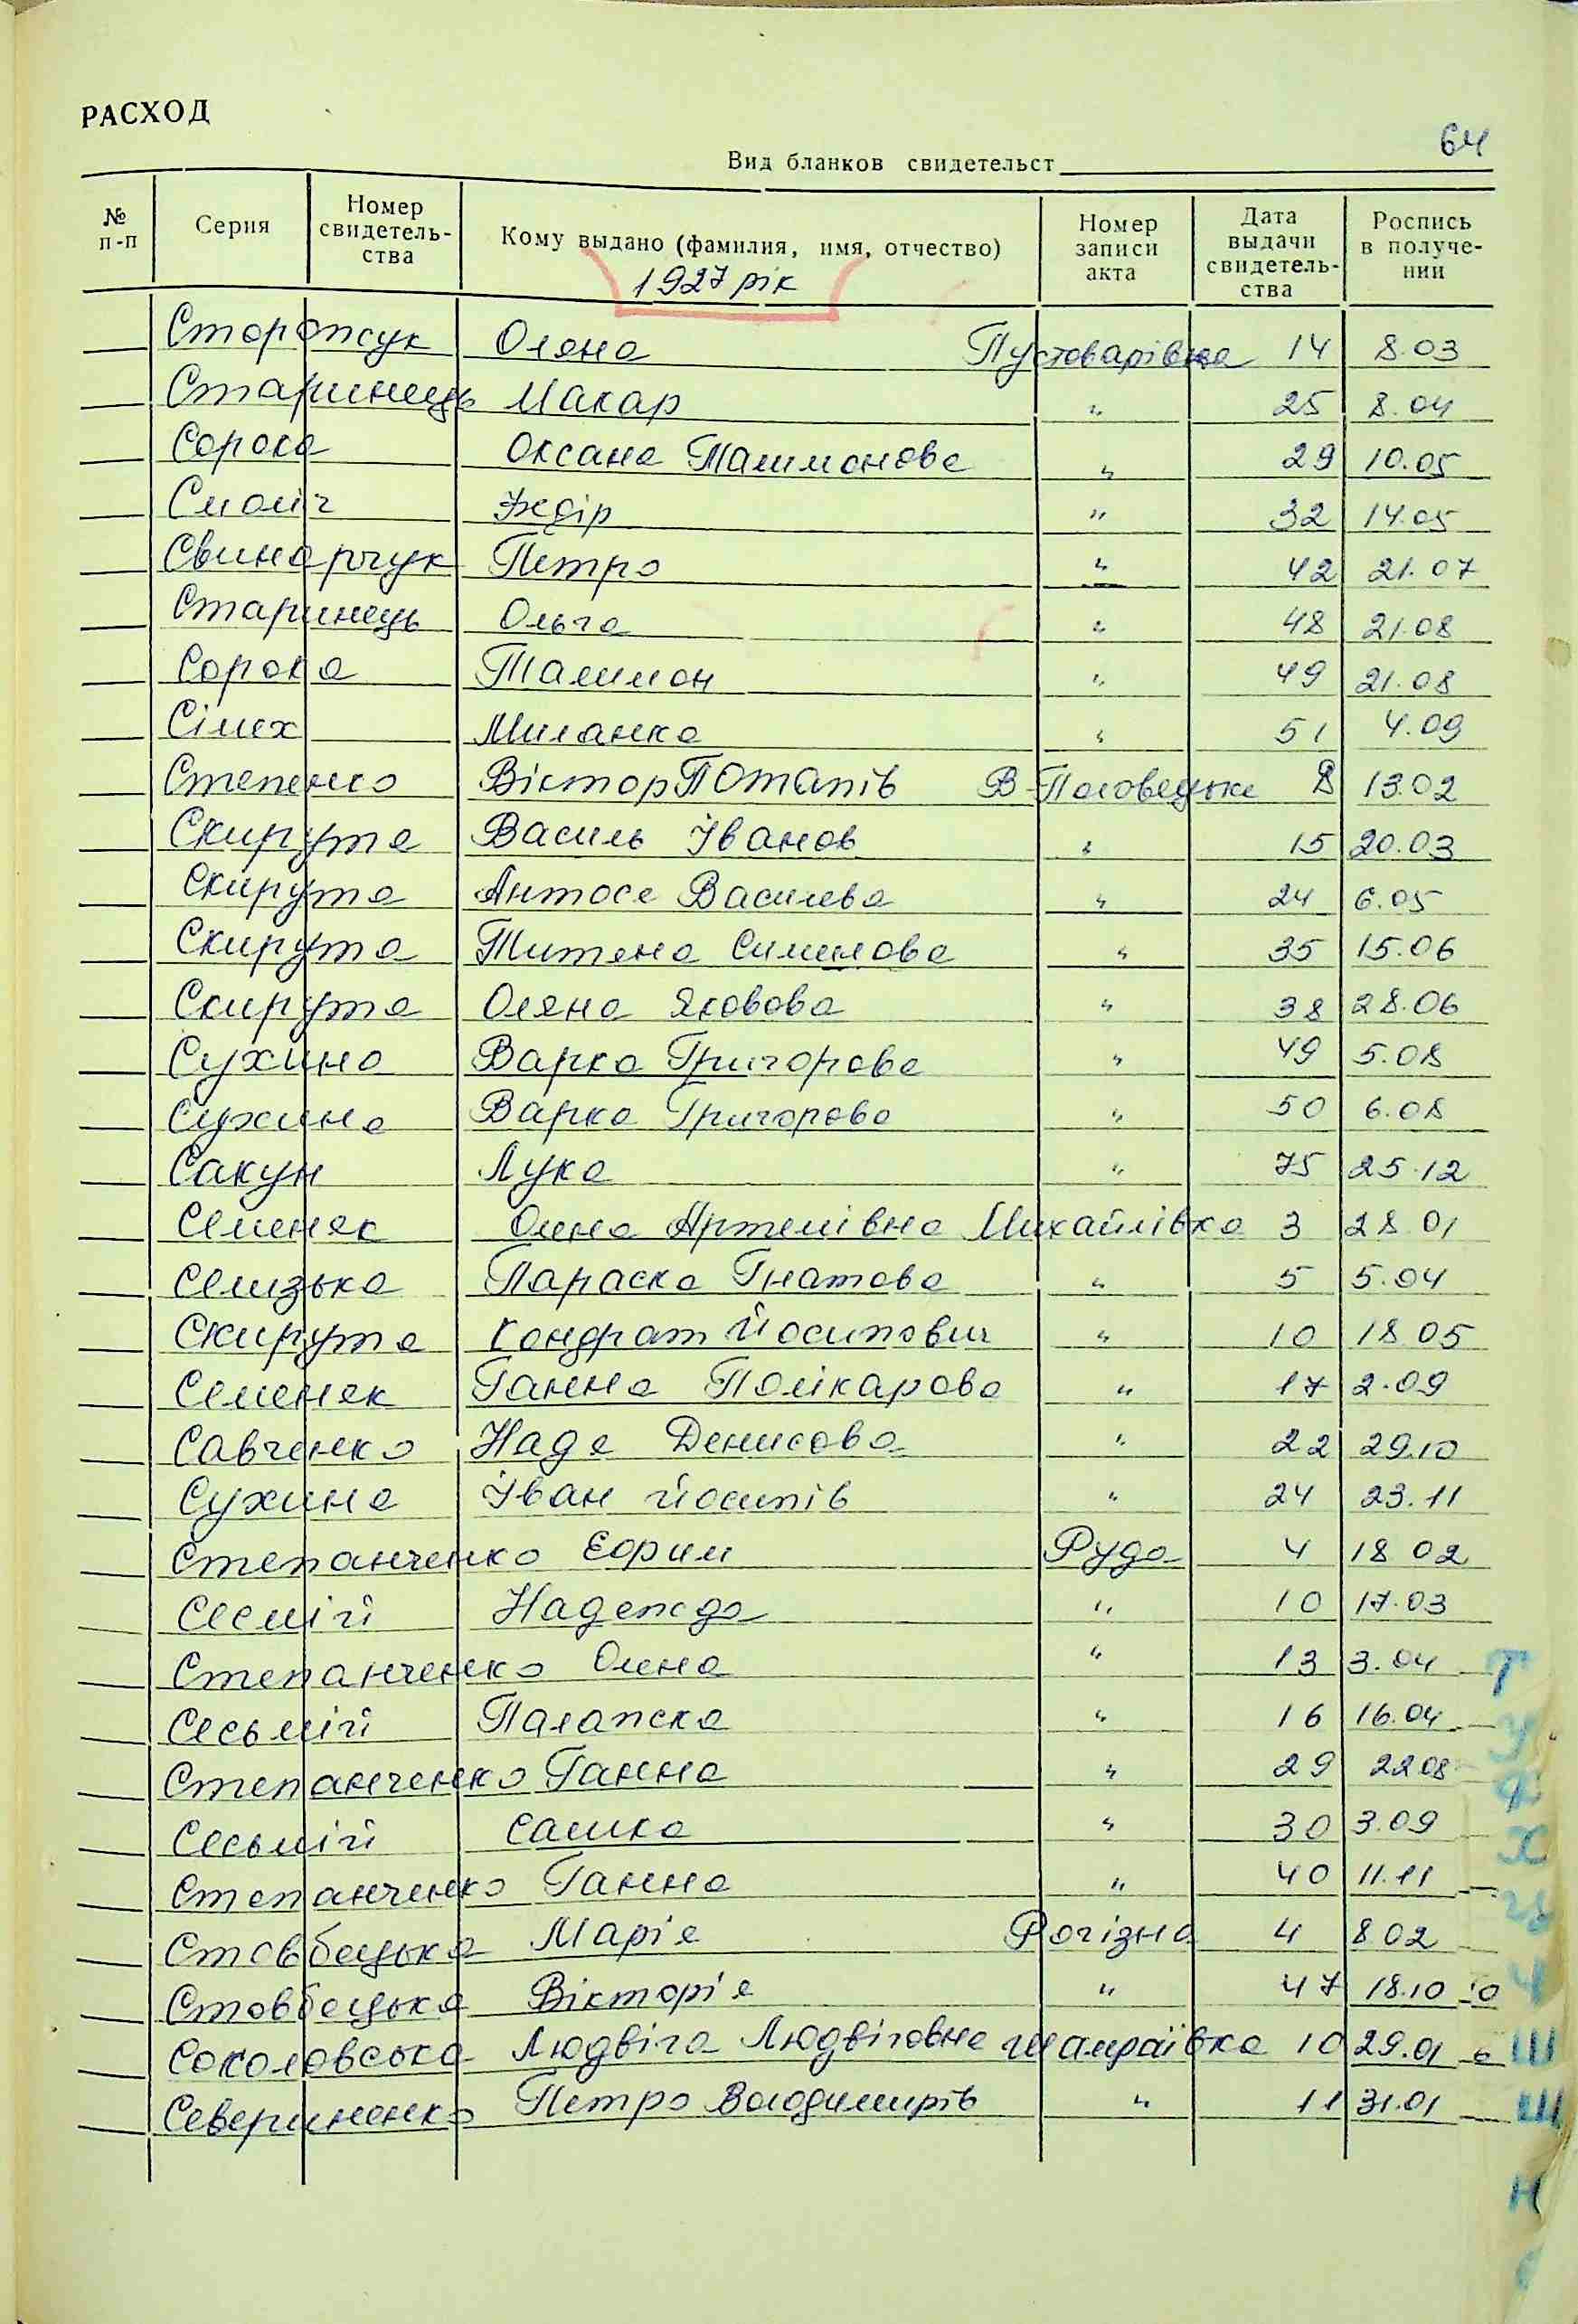 РАСХОД
64
Вид бланков свидетельст
№ п-п Серия Номер свидетель- ства Кому выдано (фамилия, имя, отчество) Номер записи акта Дата выдачи свидетель- ства Роспись в получе- нии
1927 рік
Сторожук Оляна Пустоварівка 14 8.03
Старинець Макар " 25 8.04
Сорока Оксана Талимонова " 29 10.05
Смоліч Федір " 32 14.05
Свинарчук Петро " 42 21.07
Старинець Ольга " 48 21.08
Сорока Талимон " 49 21.08
Сімех Миланка " 51 4.09
Степенко Віктор Потапів В-Половецьке 8 13.02
Скирута Василь Іванов " 15 20.03
Скирута Антося Василева " 24 6.05
Скирута Титяна Симонова " 35 15.06
Скирута Оляна Яковова " 38 28.06
Сухина Варка Григорова " 49 5.08
Сухина Варка Григорова " 50 6.08
Сакун Лука " 75 25.12
Семеняк Олена Артемівна Михайлівка 3 28 01
Селизька Параска Гнатова " 5 5.04
Скирута Кондрат Йосипович " 10 18 05
Семеняк Ганна Полікарова " 17 2.09
Савченко Надя Денисова " 22 29.10
Сухина Іван Йосипів " 24 23.11
Степанченко Єфрим Руда 4 18 02
Сесмій Надежда " 10 17.03
Степанченко Олена " 13 3.04
Сесьмій Палажка " 16 16.04
Степанченко Ганна " 29 22 08
Сесьмій Сашка " 30 3.09
Степанченко Ганна " 40 11.11
Стовбецька Марія Рогізна 4 8 02
Стовбецька Вікторія " 47 18.10
Соколовська Людвіга Людвіговна Шамраївка 10 29.01
Севериненко Петро Володимирів " 11 31.01
Т
У
Х
Ч
Ш